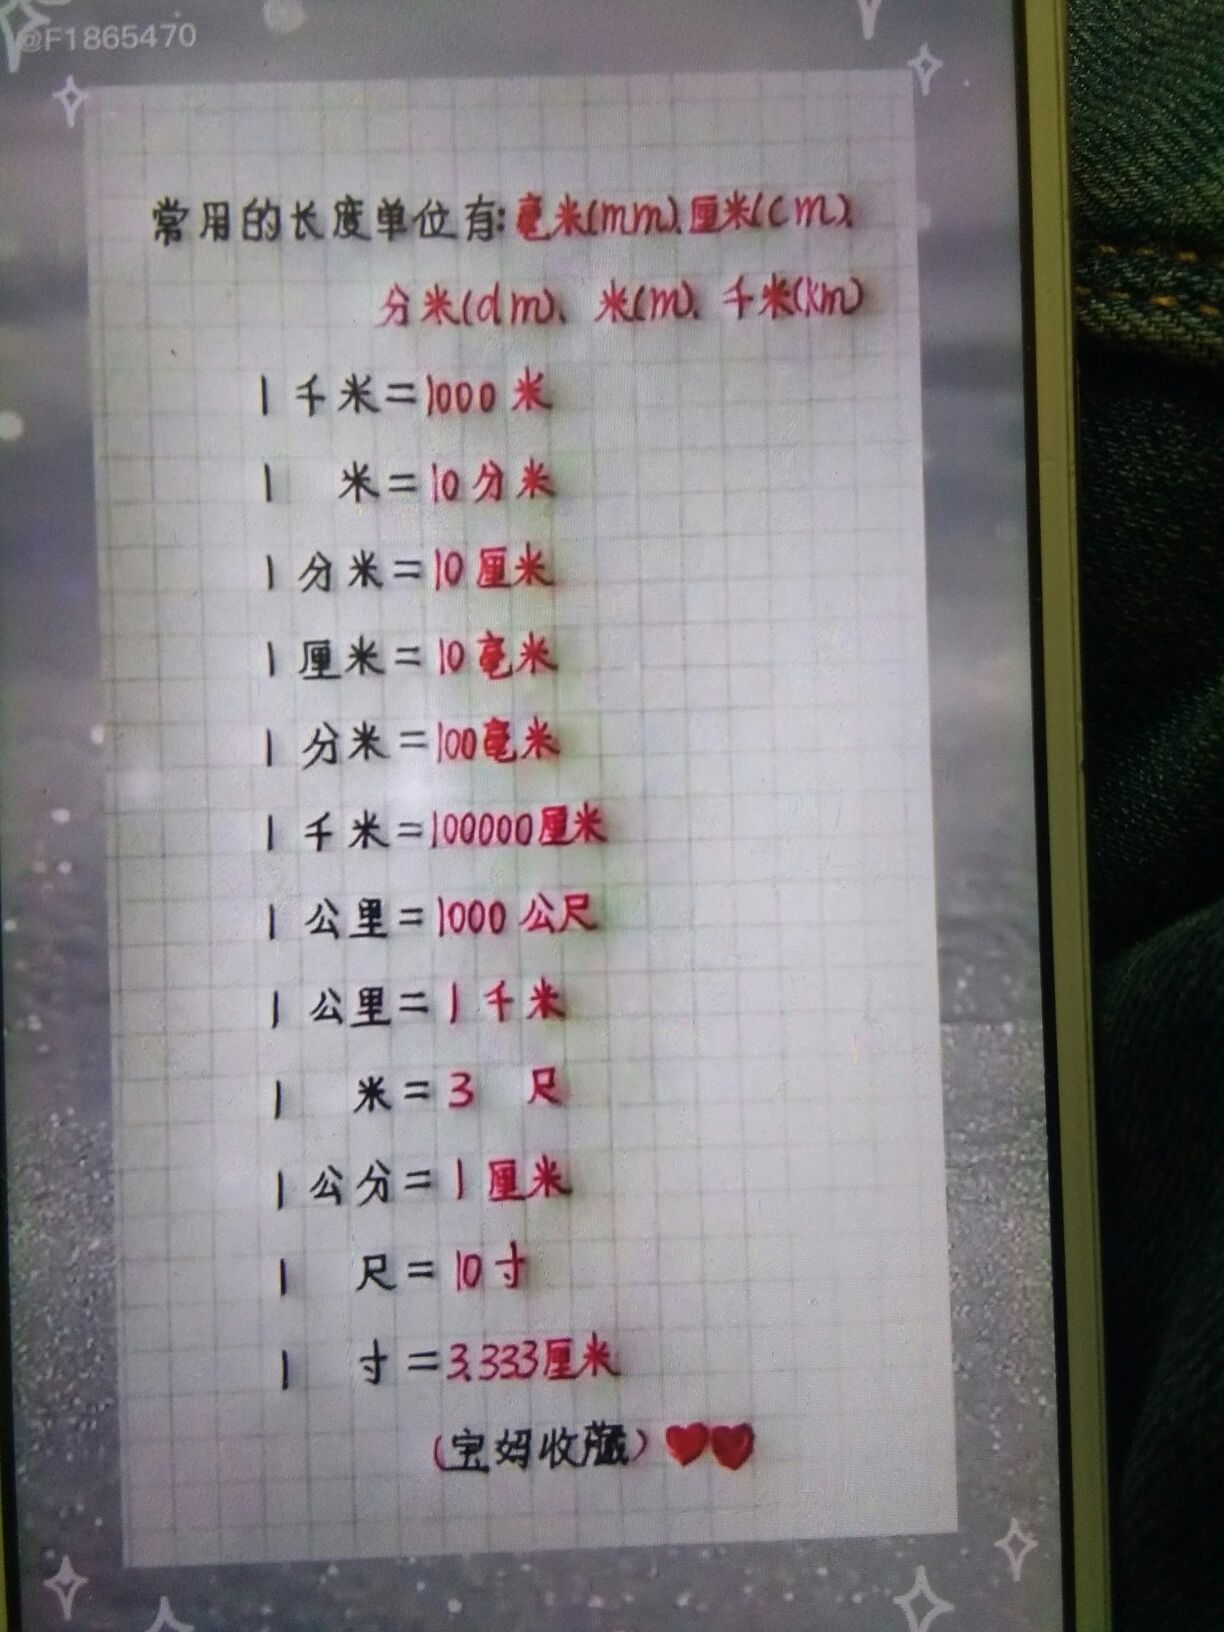 @F1865470
常用的长度单位有:毫米(mm)、厘米(cm)、
分米(dm)、米(m)、千米(km)
1千米=1000米
1 米=10分米
1分米=10厘米
1厘米=10毫米
1分米=100毫米
1千米=100000厘米
1公里=1000公尺
1公里=1千米
1 米=3 尺
1公分=1厘米
1 尺=10寸
1 寸=3.333厘米
(宝妈收藏)